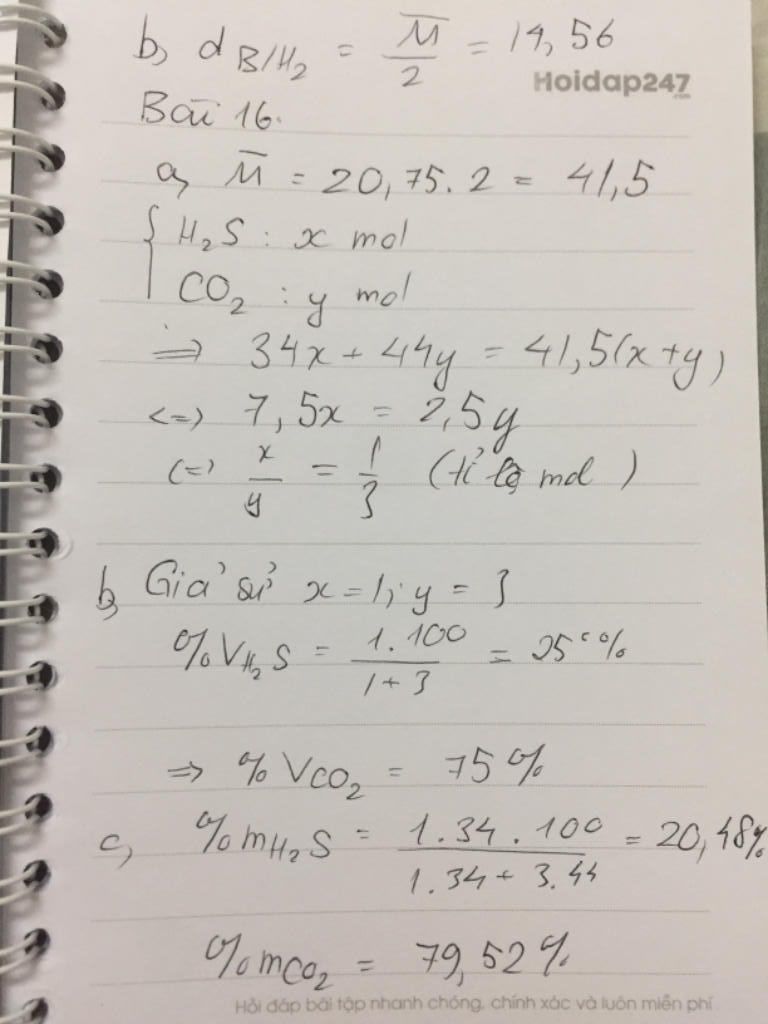 b, d B/H2 = M̄/2 = 14,56
Hoidap247
.com
Bài 16.
a, M̄ = 20,75.2 = 41,5
{ H2S : x mol
CO2 : y mol
=> 34x + 44y = 41,5(x+y)
<=> 7,5x = 2,5y
(=) x/y = 1/3 (tỉ lệ mol)
b, Giả sử x = 1; y = 3
%VH2S = 1.100/1+3 = 25%
=> %VCO2 = 75%
c, %mH2S = 1.34.100/1.34+3.44 = 20,48%
%mCO2 = 79,52%
Hỏi đáp bài tập nhanh chóng, chính xác và luôn miễn phí